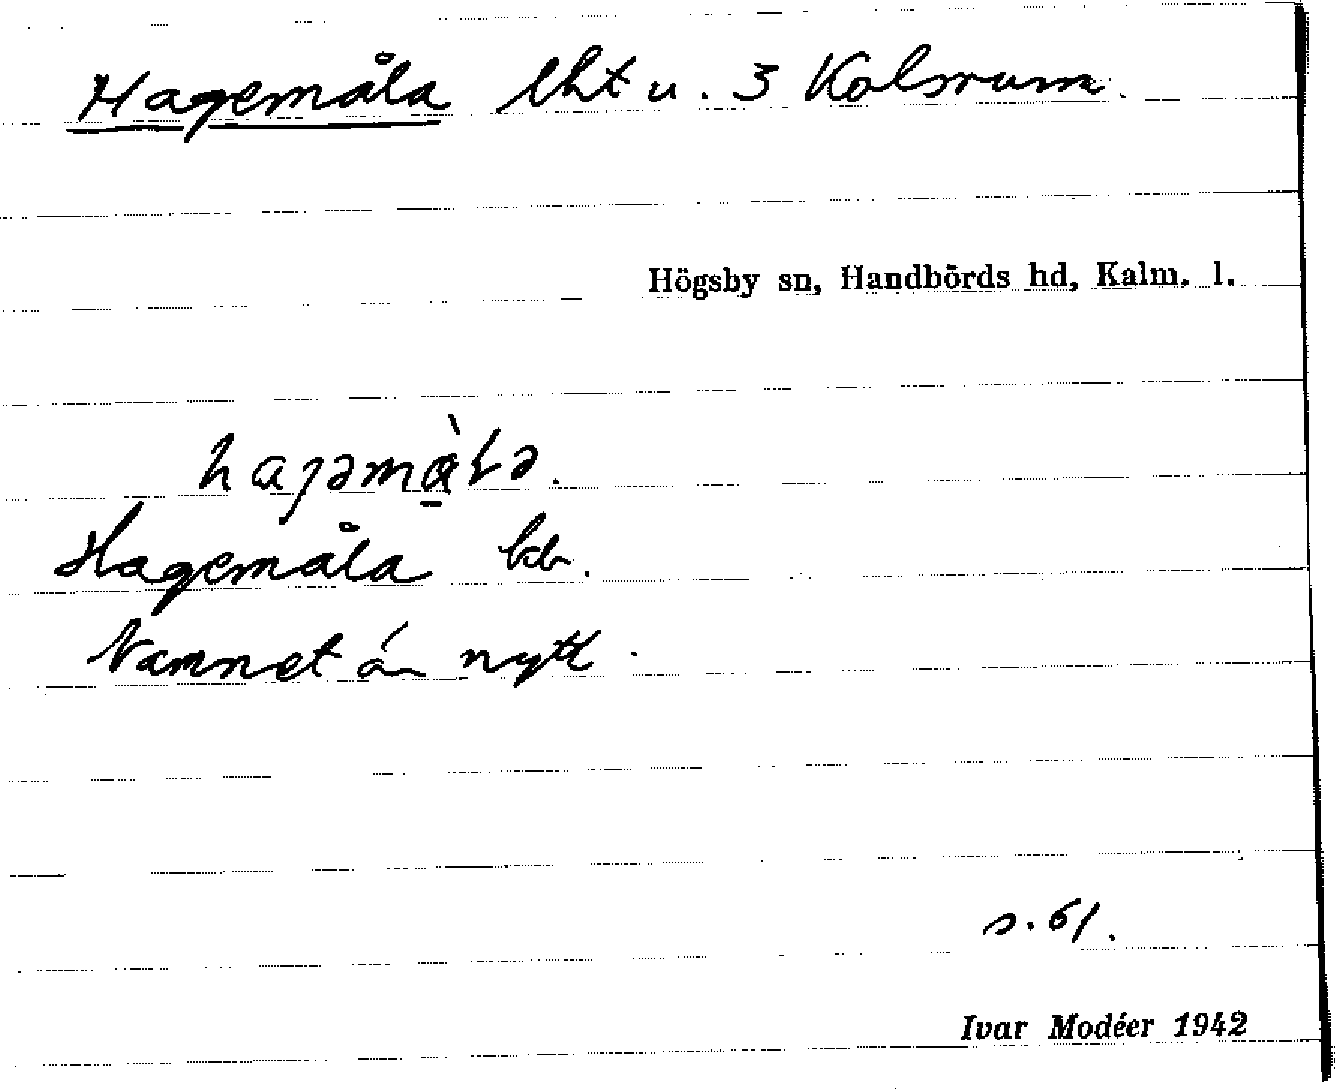 Hagemåla lht u. 3 Kolsrum.
Högsby sn, Handbörds hd, Kalm. l.
hagəmɑ̠̀Lə.
Hagemåla kb.
Namnet är nytt.
s. 61.
Ivar Modéer 1942